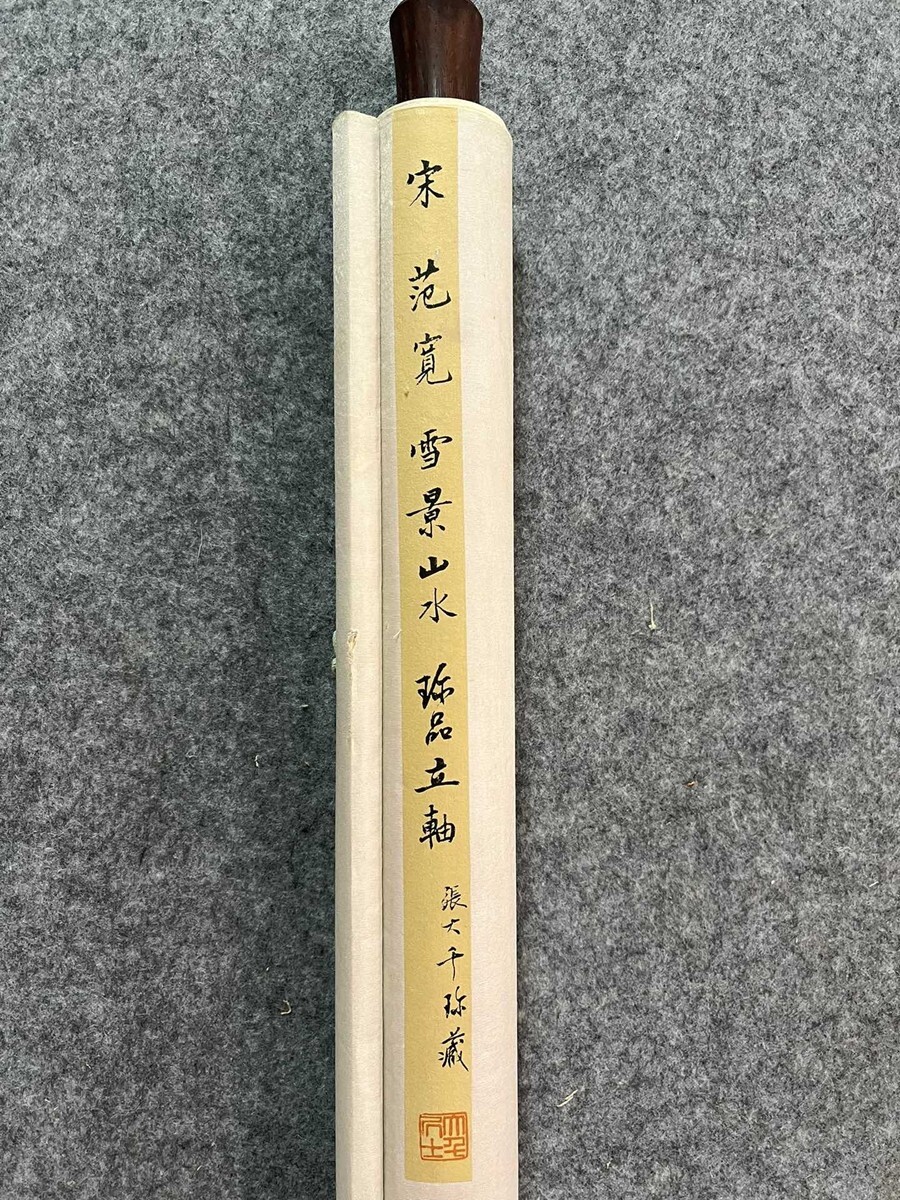 宋 范寬 雪景山水 珎品立軸
張大千珎藏
大千居士